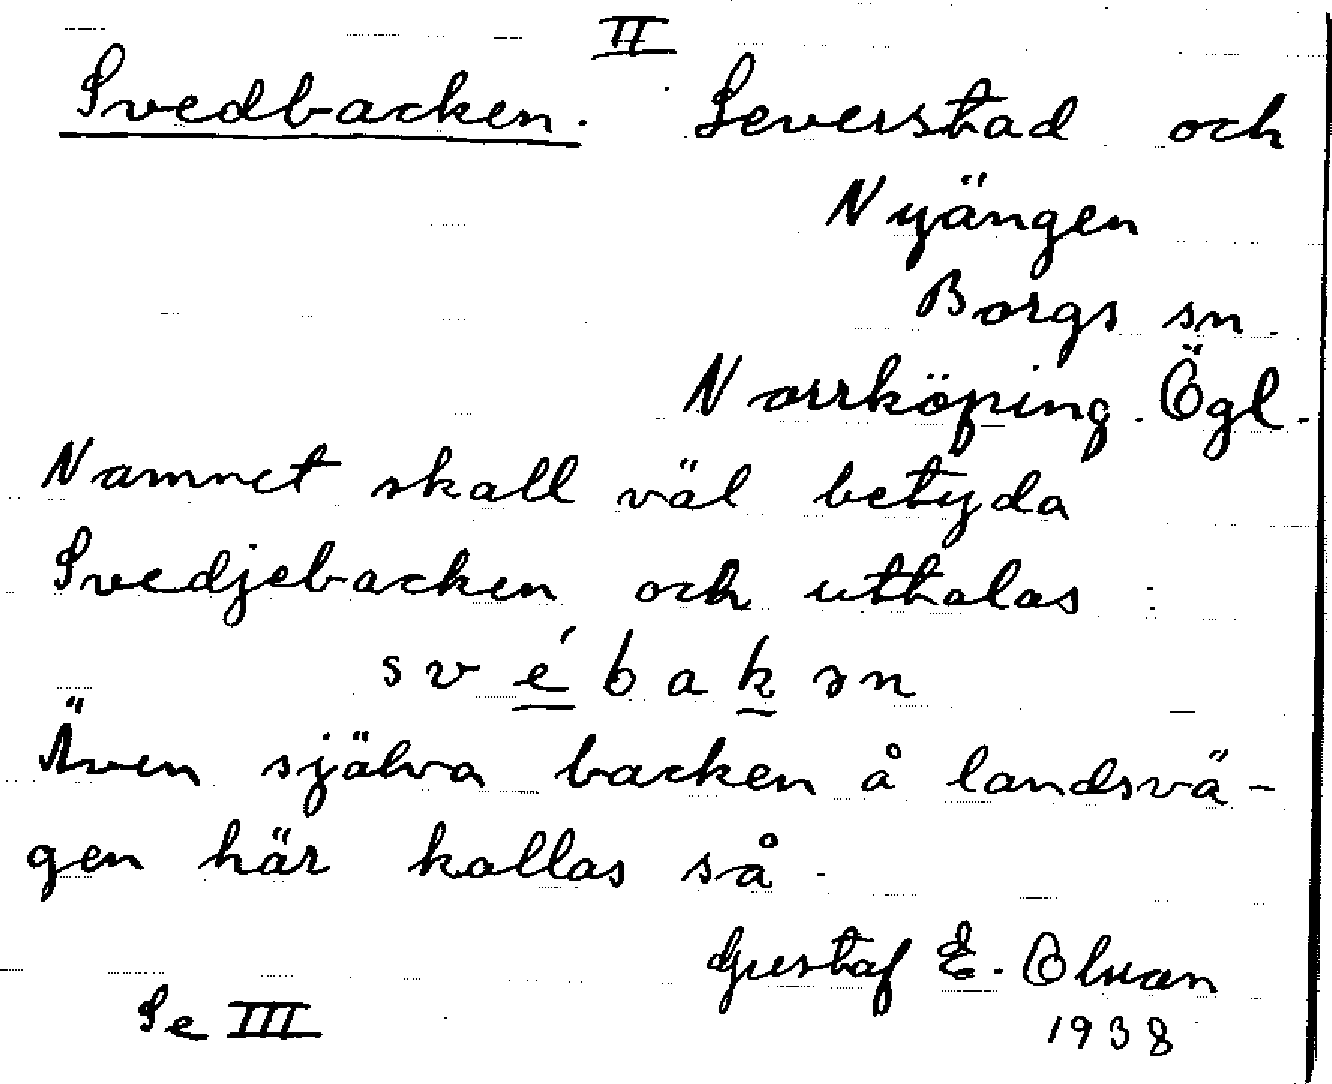 II
Svedbacken. Leverstad och
Nyängen
Borgs sn.
Norrköping. Ögl.
Namnet skall väl betyda
Svedjebacken och uttalas :
svébakən
Även själva backen å landsvä-
gen här kallas så.
Gustaf E. Olson
1938
Se III